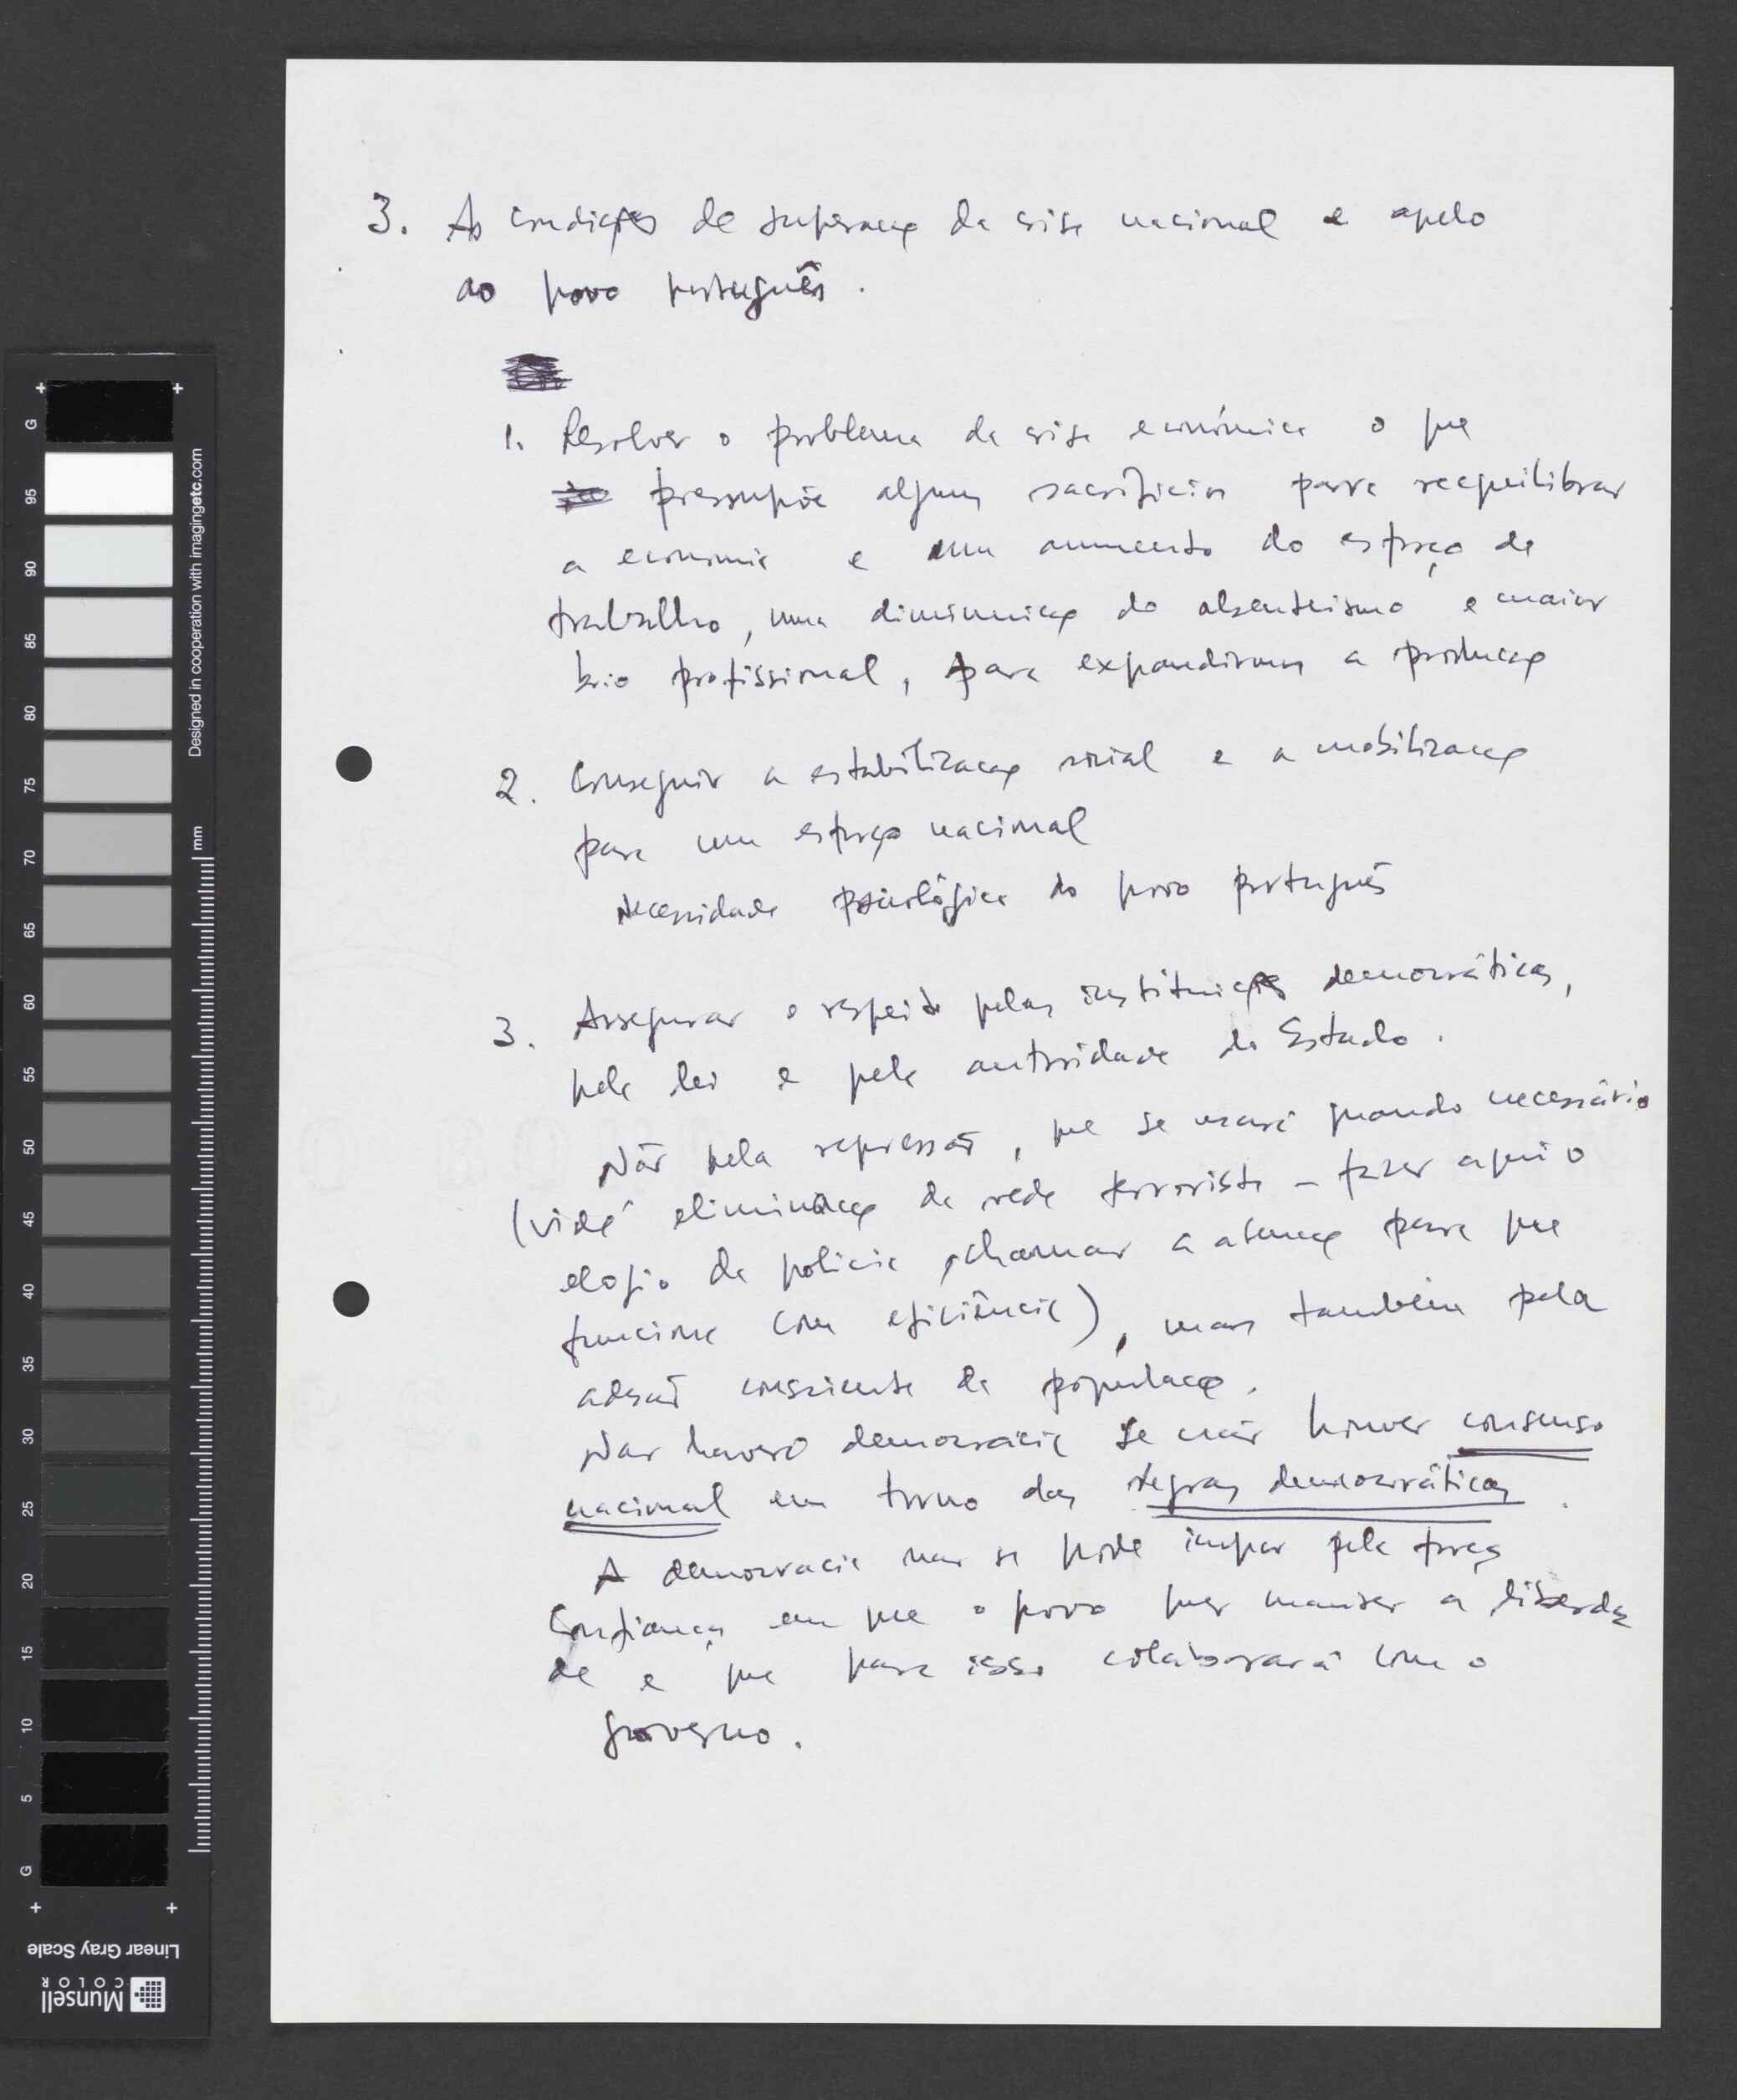 3. As condições de superação da crise nacional e apelo
ao povo português.
1. Resolver o problema da crise económica o que
pressupõe alguns sacrifícios para reequilibrar
a economia e um aumento do esforço de
trabalho, uma diminuição do absenteismo e maior
brio profissional, para expandirmos a produção
2. Conseguir a estabilização social e a mobilização
para um esforço nacional
Necessidade psicológica do povo português
3. Assegurar o respeito pelas instituições democráticas,
pela lei e pela autoridade do Estado.
Não pela repressão, que se usará quando necessário
(vidé eliminação da rede terrorista - fazer aqui o
elogio da policia, chamar a atenção para que
funciona com eficiência), mas também pela
adesão consciente da população.
Não haverá democracia se não houver consenso
nacional em torno das regras democráticas.
A democracia não se pode impor pela força
Confiança em que o povo quer manter a liberda
de e que para isso colaborará com o
governo.
G 95 90 85 80 75 70 65 60 55 50 45 40 35 30 25 20 15 10 5 G
Designed in cooperation with imagingetc.com
mm
Linear Gray Scale
Munsell
COLOR